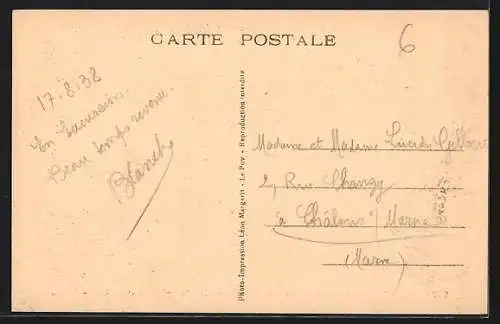 CARTE POSTALE
6
17.8.38
En Excursion.
Beau temps revenu.
Blanche
Photo-Impression Léon Margerit - Le Puy - Reproduction interdite
Madame et Madame Lucien
2, Rue Chanzy
à Châlons s/ Marne
(Marne)